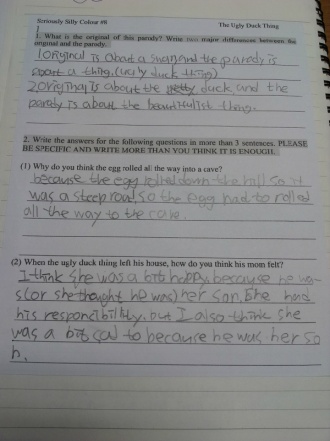 Seriously Silly Colour #8 The Ugly Duck Thing
1. What is the original of this parody? Write two major differences between the
original and the parody.
1 Original is about a swan and the parody is
about a thing. (ugly duck thing)
2 Original is about the pretty duck and the
parody is about the beautifulist thing.
2. Write the answers for the following questions in more than 3 sentences. PLEASE
BE SPECIFIC AND WRITE MORE THAN YOU THINK IT IS ENOUGH.
(1) Why do you think the egg rolled all the way into a cave?
because the egg rolled down the hill so it
was a steep road, so the egg had to rolled
all the way to the cave.
(2) When the ugly duck thing left his house, how do you think his mom felt?
I think she was a bit happy, because he wa-
s (or she thought he was) her son. She had
his responcibility, but I also think she
was a bit sad to because he was her so
n.